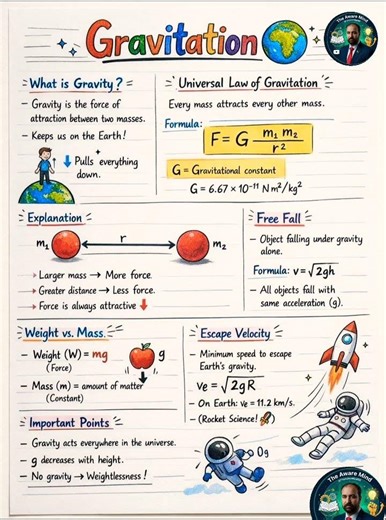 Gravitation
The Aware Mind
What is Gravity?
– Gravity is the force of
attraction between two masses.
– Keeps us on the Earth!
⬇ Pulls everything
down.
Universal Law of Gravitation
Every mass attracts every other mass.
Formula:
F = G m₁ m₂ / r²
G = Gravitational constant
G = 6.67 × 10⁻¹¹ N m²/kg²
Explanation
m₁ r m₂
→ Larger mass → More force.
→ Greater distance → Less force.
→ Force is always attractive ⬇
Free Fall
– Object falling under gravity
alone.
Formula: v = √2gh
– All objects fall with
same acceleration (g).
Weight vs. Mass
– Weight (W) = mg
(Force)
g
– Mass (m) = amount of matter
(Constant)
Escape Velocity
– Minimum speed to escape
Earth's gravity.
ve = √2gR
– On Earth: ve = 11.2 km/s.
– (Rocket Science! 🚀)
Important Points
– Gravity acts everywhere in the universe.
– g decreases with height.
– No gravity → Weightlessness!
0g
The Aware Mind